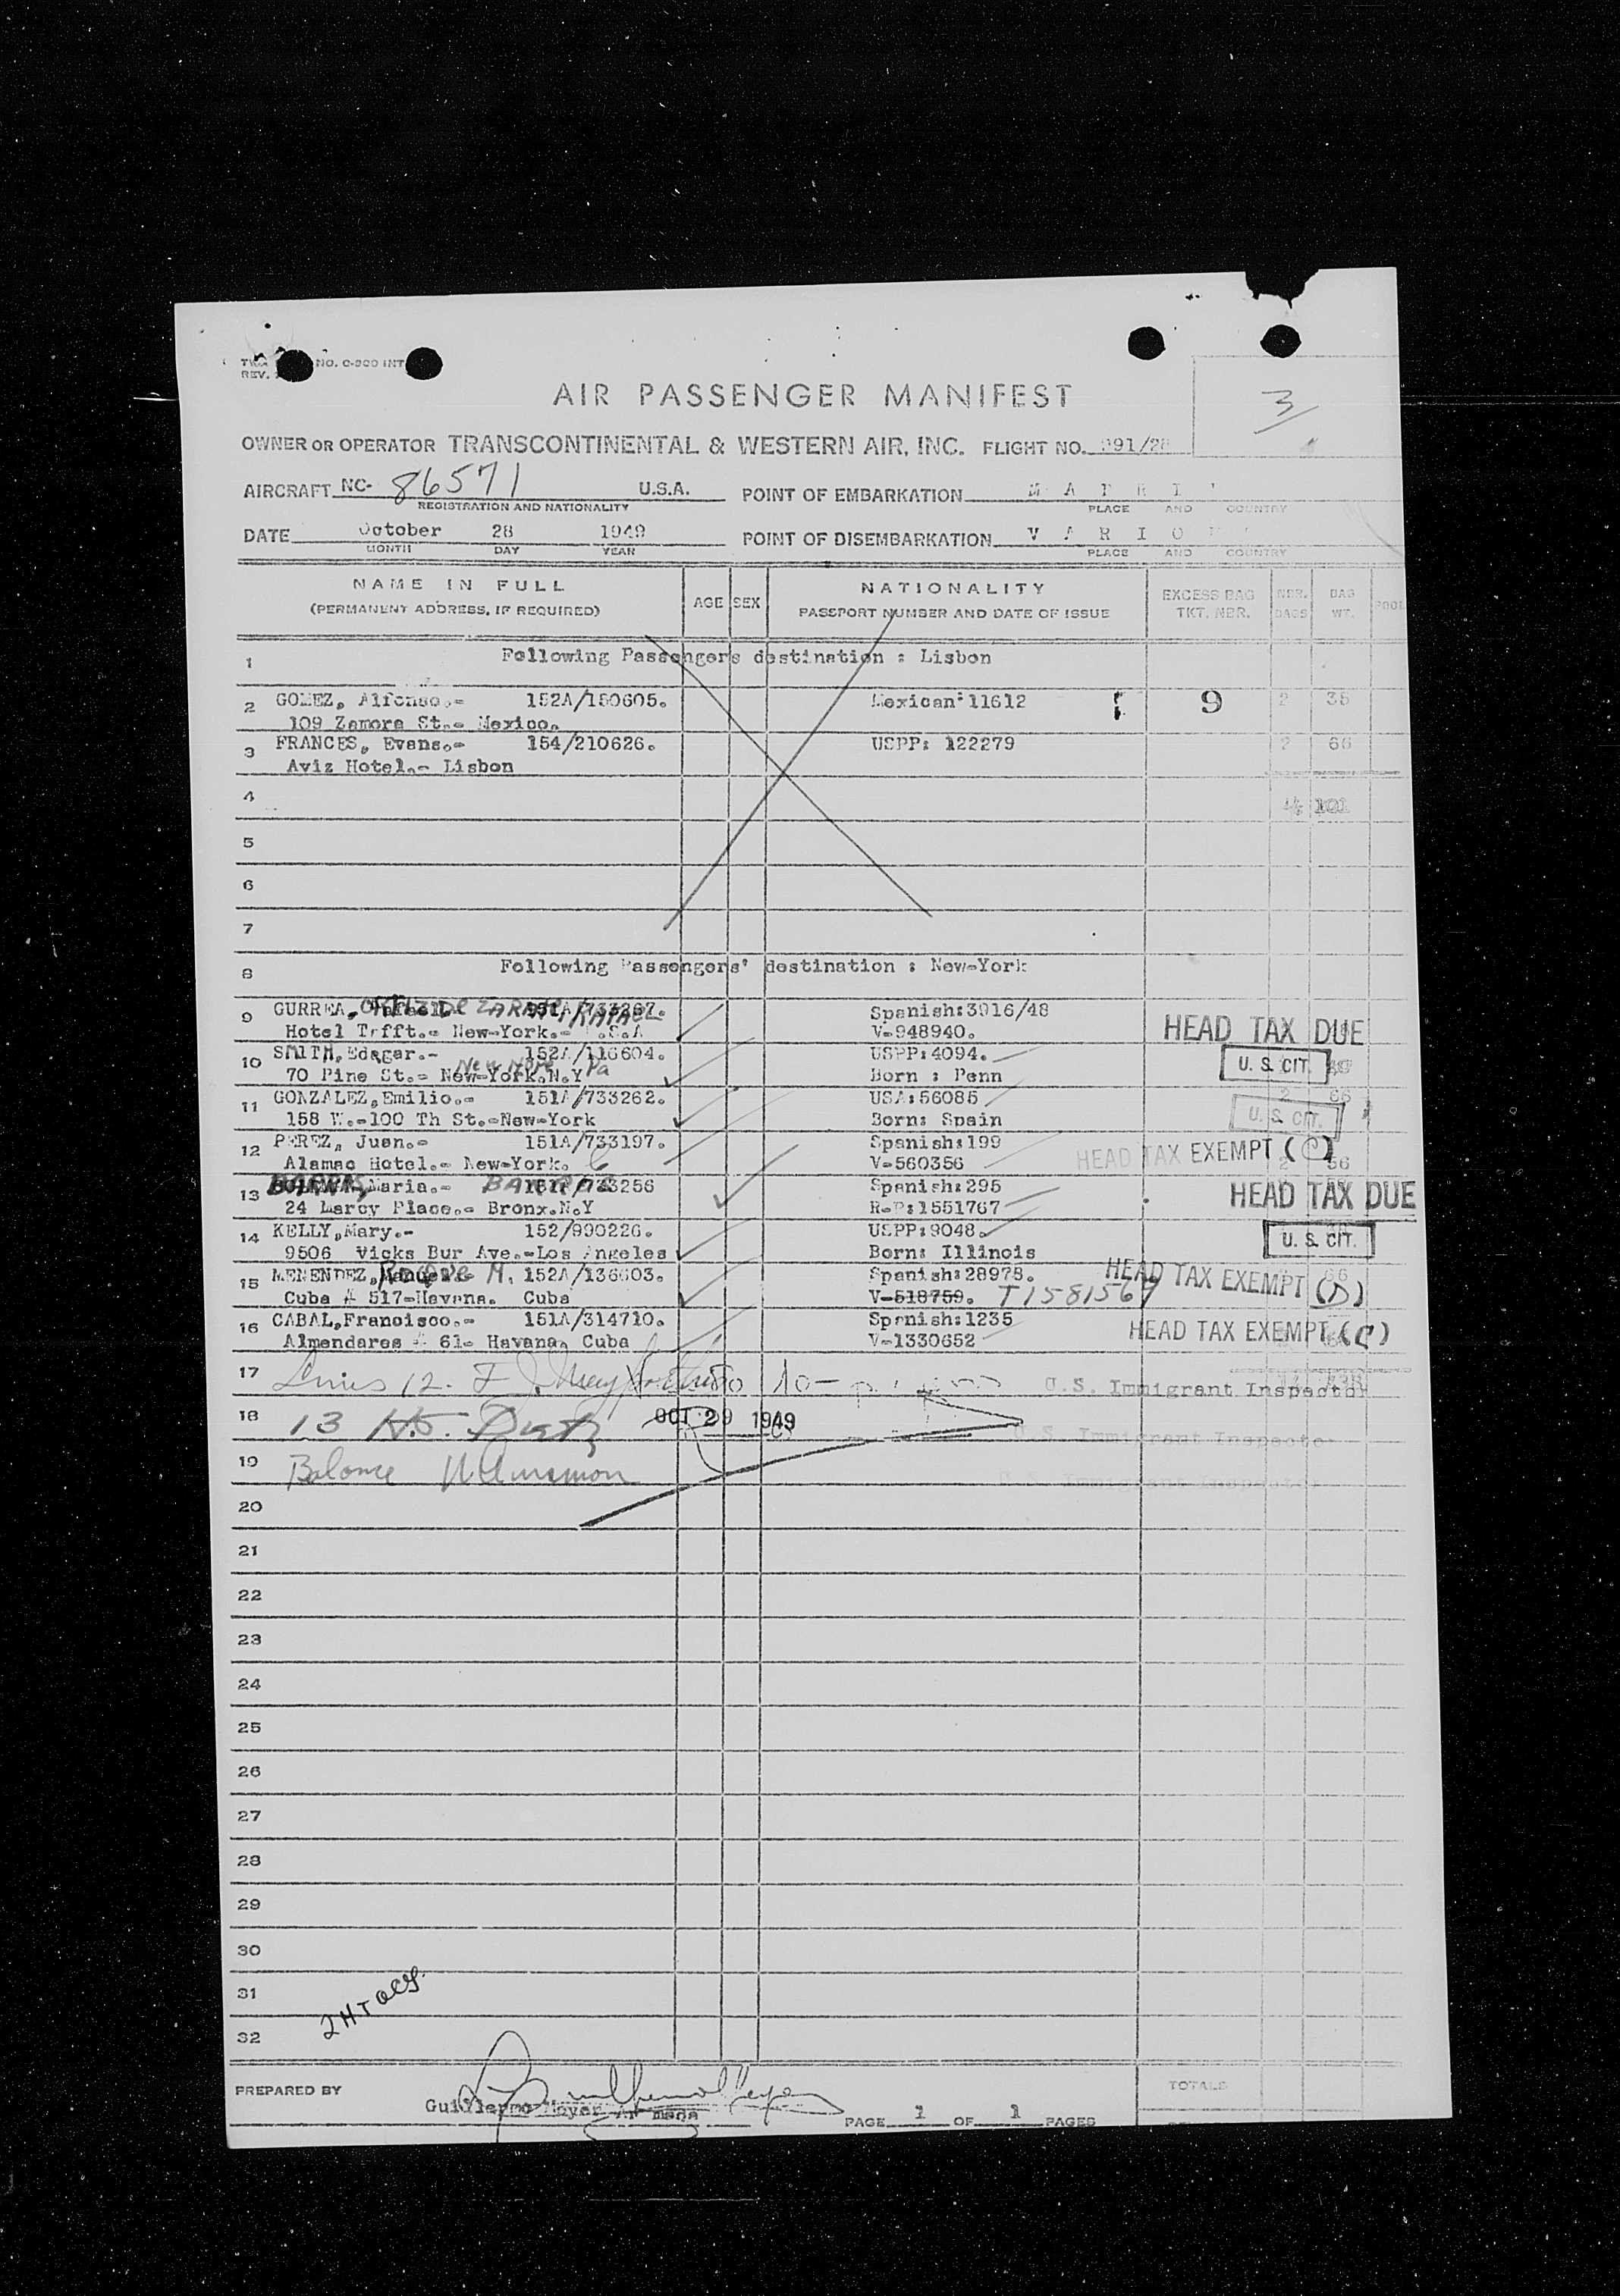 NO. 0-900 INT
REV.
AIR PASSENGER MANIFEST
3
OWNER OR OPERATOR TRANSCONTINENTAL & WESTERN AIR, INC. FLIGHT NO. 991/28
AIRCRAFT NC- 86571 U.S.A. POINT OF EMBARKATION
REGISTRATION AND NATIONALITY PLACE AND COUNTRY
DATE October 28 1949 POINT OF DISEMBARKATION
MONTH DAY YEAR PLACE AND COUNTRY
NAME IN FULL AGE SEX NATIONALITY EXCESS BAG NBR. BAG
(PERMANENT ADDRESS, IF REQUIRED) PASSPORT NUMBER AND DATE OF ISSUE TKT. NBR. BAGS WT. POOL
1 Following Passengers destination : Lisbon
2 GOMEZ, Alfonso.- 152A/150605. Mexican:11612 9 2 35
109 Zamora St.- Mexico.
3 FRANCES, Evans.- 154/210626. USPP: 122279 2 66
Aviz Hotel.- Lisbon
4 101
5
6
7
8 Following Passengers' destination : New-York
9 GURREA, ORTIZ DE ZARATE, RAFAEL 151A/733267. Spanish:3916/48
Hotel Tafft.- New-York.- U.S.A V-948940. HEAD TAX DUE
10 SMITH, Edegar.- 152A/116604. USPP:4094. U. S. CIT.
70 Pine St.- New-York.N.Y New Hope Pa Born : Penn
11 GONZALEZ,Emilio.- 151A/733262. USA:56085 2 66
158 W.-100 Th St.-New-York Born: Spain U. S. CIT.
12 PEREZ, Juan.- 151A/733197. Spanish:199 HEAD TAX EXEMPT (C)
Alamac Hotel.- New-York. C V-560356 56
13 BARROS, Maria.- 151A/733256 Spanish:295 HEAD TAX DUE
24 Marcy Place.- Bronx.N.Y R-P:1551767
14 KELLY,Mary.- 152/990226. USPP:9048. U. S. CIT.
9506 Vicks Bur Ave.-Los Angeles Born: Illinois
15 MENENDEZ, M. 152A/136603. Spanish:28978. HEAD TAX EXEMPT (D)
Cuba # 517-Havana. Cuba V-518759. T1581567
16 CABAL,Francisco.- 151A/314710. Spanish:1235 HEAD TAX EXEMPT (C)
Almendares # 61- Havana, Cuba V-1330652
17 Lines 12. 10- U.S. Immigrant Inspector
18 13 H.J. OCT 29 1949 U.S. Immigrant Inspector
19 Balance U.S. Immigrant Inspector
20
21
22
23
24
25
26
27
28
29
30
31
32 2 HT
PREPARED BY TOTALS
Guillermo Moyer PAGE 1 OF 1 PAGES